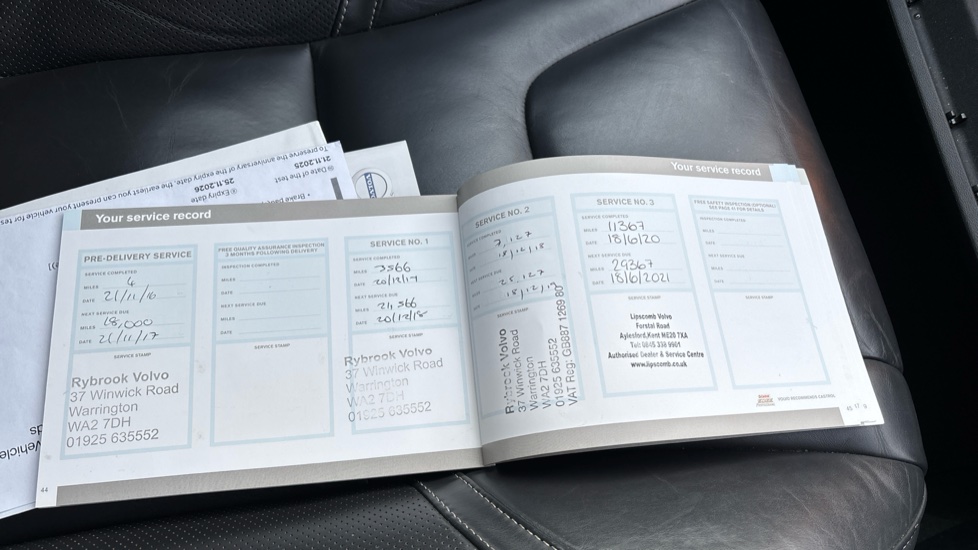 To preserve the anniversary of the expiry date, the earliest you can present your vehicle for test
Date of the test
21.11.2025
Expiry date
25.11.2026
VOLVO
Your service record
PRE-DELIVERY SERVICE
SERVICE COMPLETED
MILES 4
DATE 21/11/16
NEXT SERVICE DUE
MILES 18,000
DATE 21/11/17
SERVICE STAMP
Rybrook Volvo
37 Winwick Road
Warrington
WA2 7DH
01925 635552
44
FREE QUALITY ASSURANCE INSPECTION
3 MONTHS FOLLOWING DELIVERY
INSPECTION COMPLETED
MILES
DATE
NEXT SERVICE DUE
MILES
DATE
SERVICE STAMP
SERVICE NO. 1
SERVICE COMPLETED
MILES 3566
DATE 20/12/17
NEXT SERVICE DUE
MILES 21,566
DATE 20/12/18
SERVICE STAMP
Rybrook Volvo
37 Winwick Road
Warrington
WA2 7DH
01925 635552
Your service record
SERVICE NO. 2
SERVICE COMPLETED
7,127
18/12/18
NEXT SERVICE DUE
25,127
18/12/19
Rybrook Volvo
37 Winwick Road
Warrington
WA2 7DH
01925 635552
VAT Reg: GB887 1269 80
SERVICE NO. 3
SERVICE COMPLETED
MILES 11367
DATE 18/6/20
NEXT SERVICE DUE
MILES 29367
DATE 18/6/2021
SERVICE STAMP
Lipscomb Volvo
Forstal Road
Aylesford, Kent ME20 7XA
Tel: 0845 338 9901
Authorised Dealer & Service Centre
www.lipscomb.co.uk
FREE SAFETY INSPECTION (OPTIONAL)
SEE PAGE 31 FOR DETAILS
INSPECTION COMPLETED
MILES
DATE
NEXT SERVICE DUE
MILES
DATE
SERVICE STAMP
Castrol
VOLVO RECOMMENDS CASTROL
45